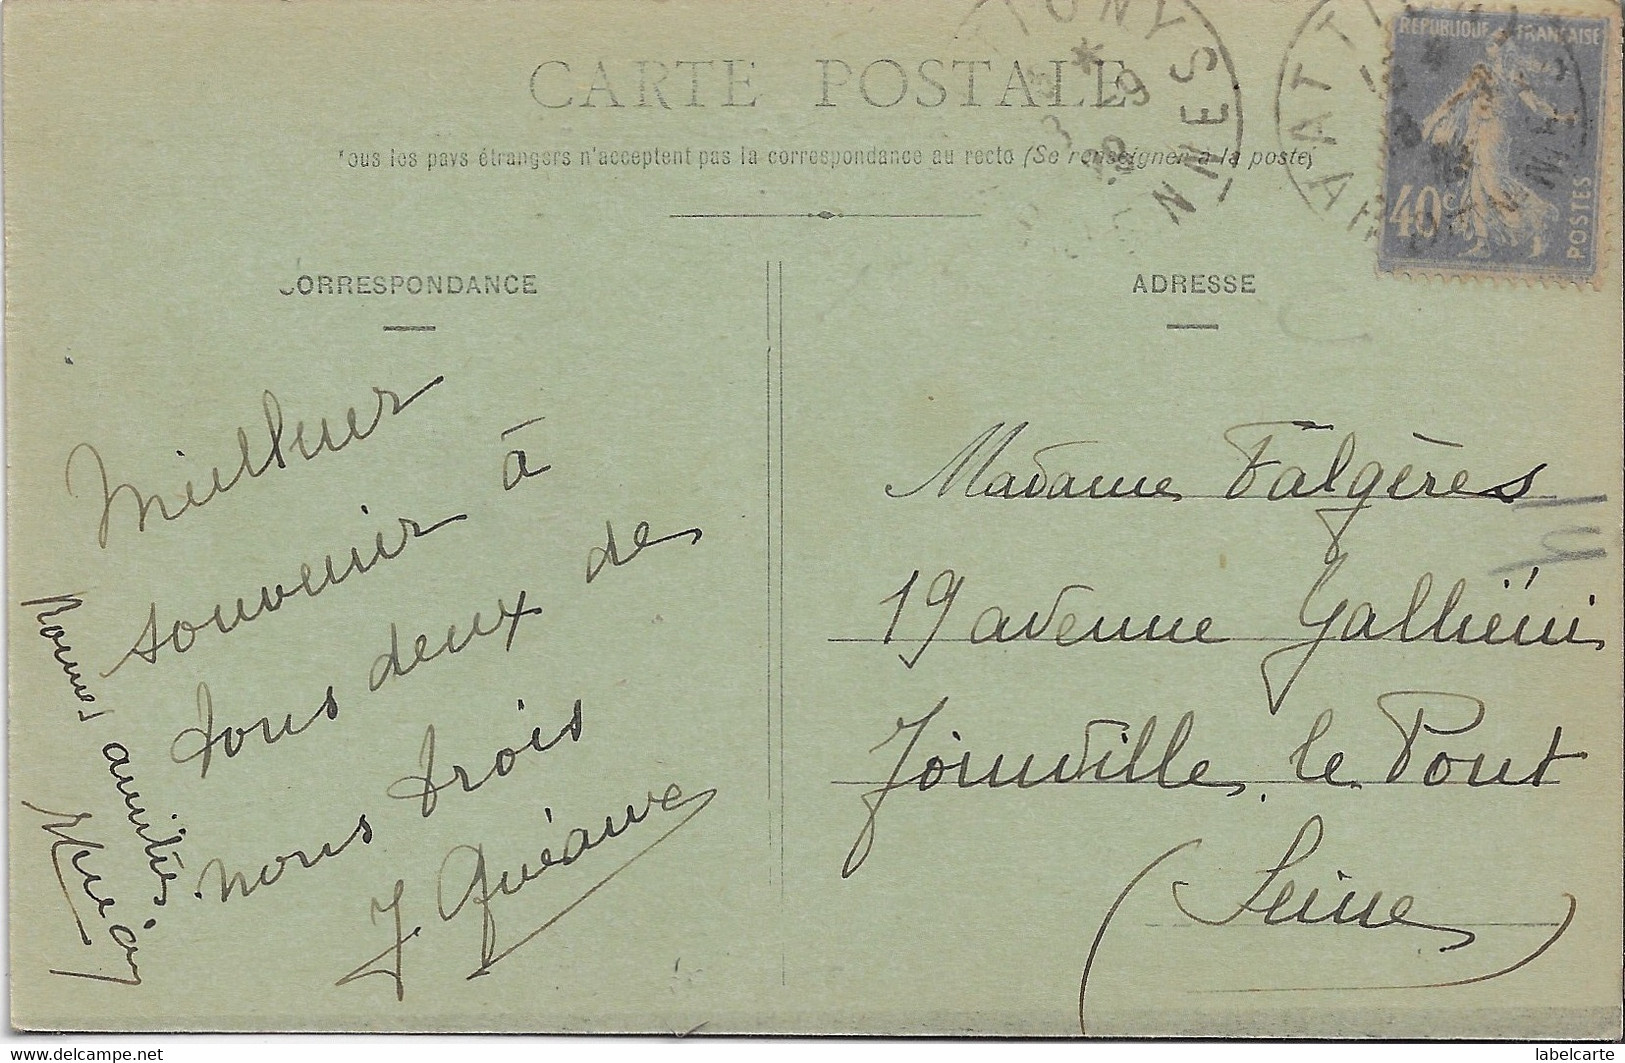 CARTE POSTALE
Tous les pays étrangers n'acceptent pas la correspondance au recto (Se renseigner à la poste)
CORRESPONDANCE
ADRESSE
RÉPUBLIQUE FRANÇAISE
40c
POSTES
ATTIGNY
ARDENNES
Meilleur
souvenir à
tous deux de
nous trois
J. Quéanve
Bonnes amitiés
Madame Falgères
19 avenue Galliéni
Joinville le Pont
(Seine)
labelcarte